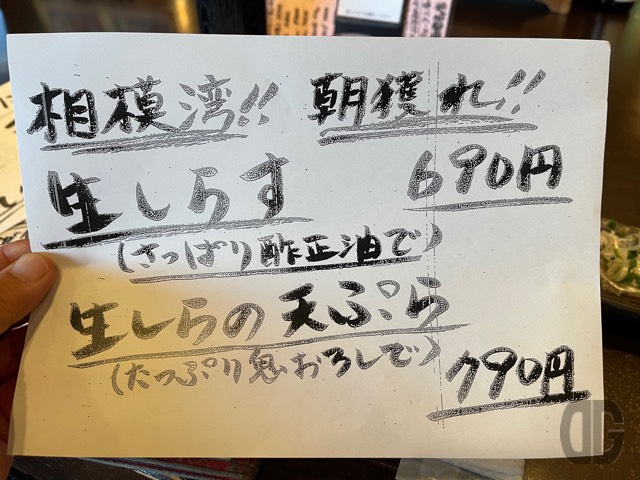 相模湾!! 朝獲れ!!
生しらす 690円
(さっぱり酢正油で)
生しらの天ぷら
(たっぷり鬼おろしで) 790円